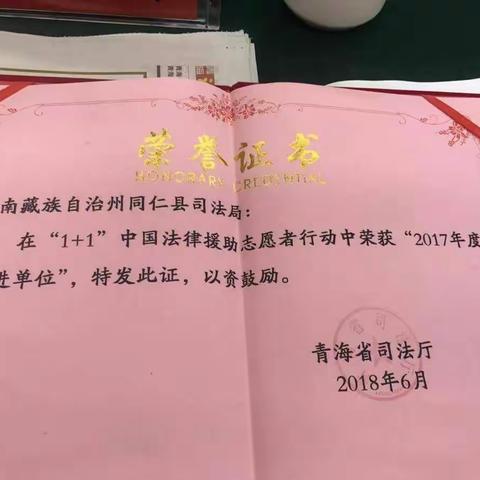 荣誉证书
HONORARY CREDENTIAL
南藏族自治州同仁县司法局：
在“1+1”中国法律援助志愿者行动中荣获“2017年度
进单位”，特发此证，以资鼓励。
省司
青海省司法厅
2018年6月